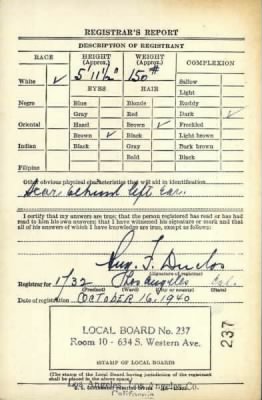 REGISTRAR'S REPORT
DESCRIPTION OF REGISTRANT
RACE HEIGHT (Approx.) WEIGHT (Approx.) COMPLEXION
White ✓ 5' 11½" 150# Sallow
EYES HAIR Light
Negro Blue Blonde Ruddy
Gray Red Dark ✓
Oriental Hazel Brown ✓ Freckled
Brown ✓ Black Light brown
Indian Black Gray Dark brown
Bald Black
Filipino
Other obvious physical characteristics that will aid in identification
Scar behind left ear.
I certify that my answers are true; that the person registered has read or has had
read to him his own answers; that I have witnessed his signature or mark and that
all of his answers of which I have knowledge are true, except as follows:
F. Duclos
(Signature of registrar)
Registrar for 1732 Los Angeles Cal.
(Precinct) (Ward) (City or county) (State)
Date of registration OCTOBER 16, 1940
LOCAL BOARD No. 237
Room 10 - 634 S. Western Ave.
237
(STAMP OF LOCAL BOARD)
(The stamp of the Local Board having jurisdiction of the registrant
shall be placed in the above space)
Los Angeles, Los Angeles Co.
California